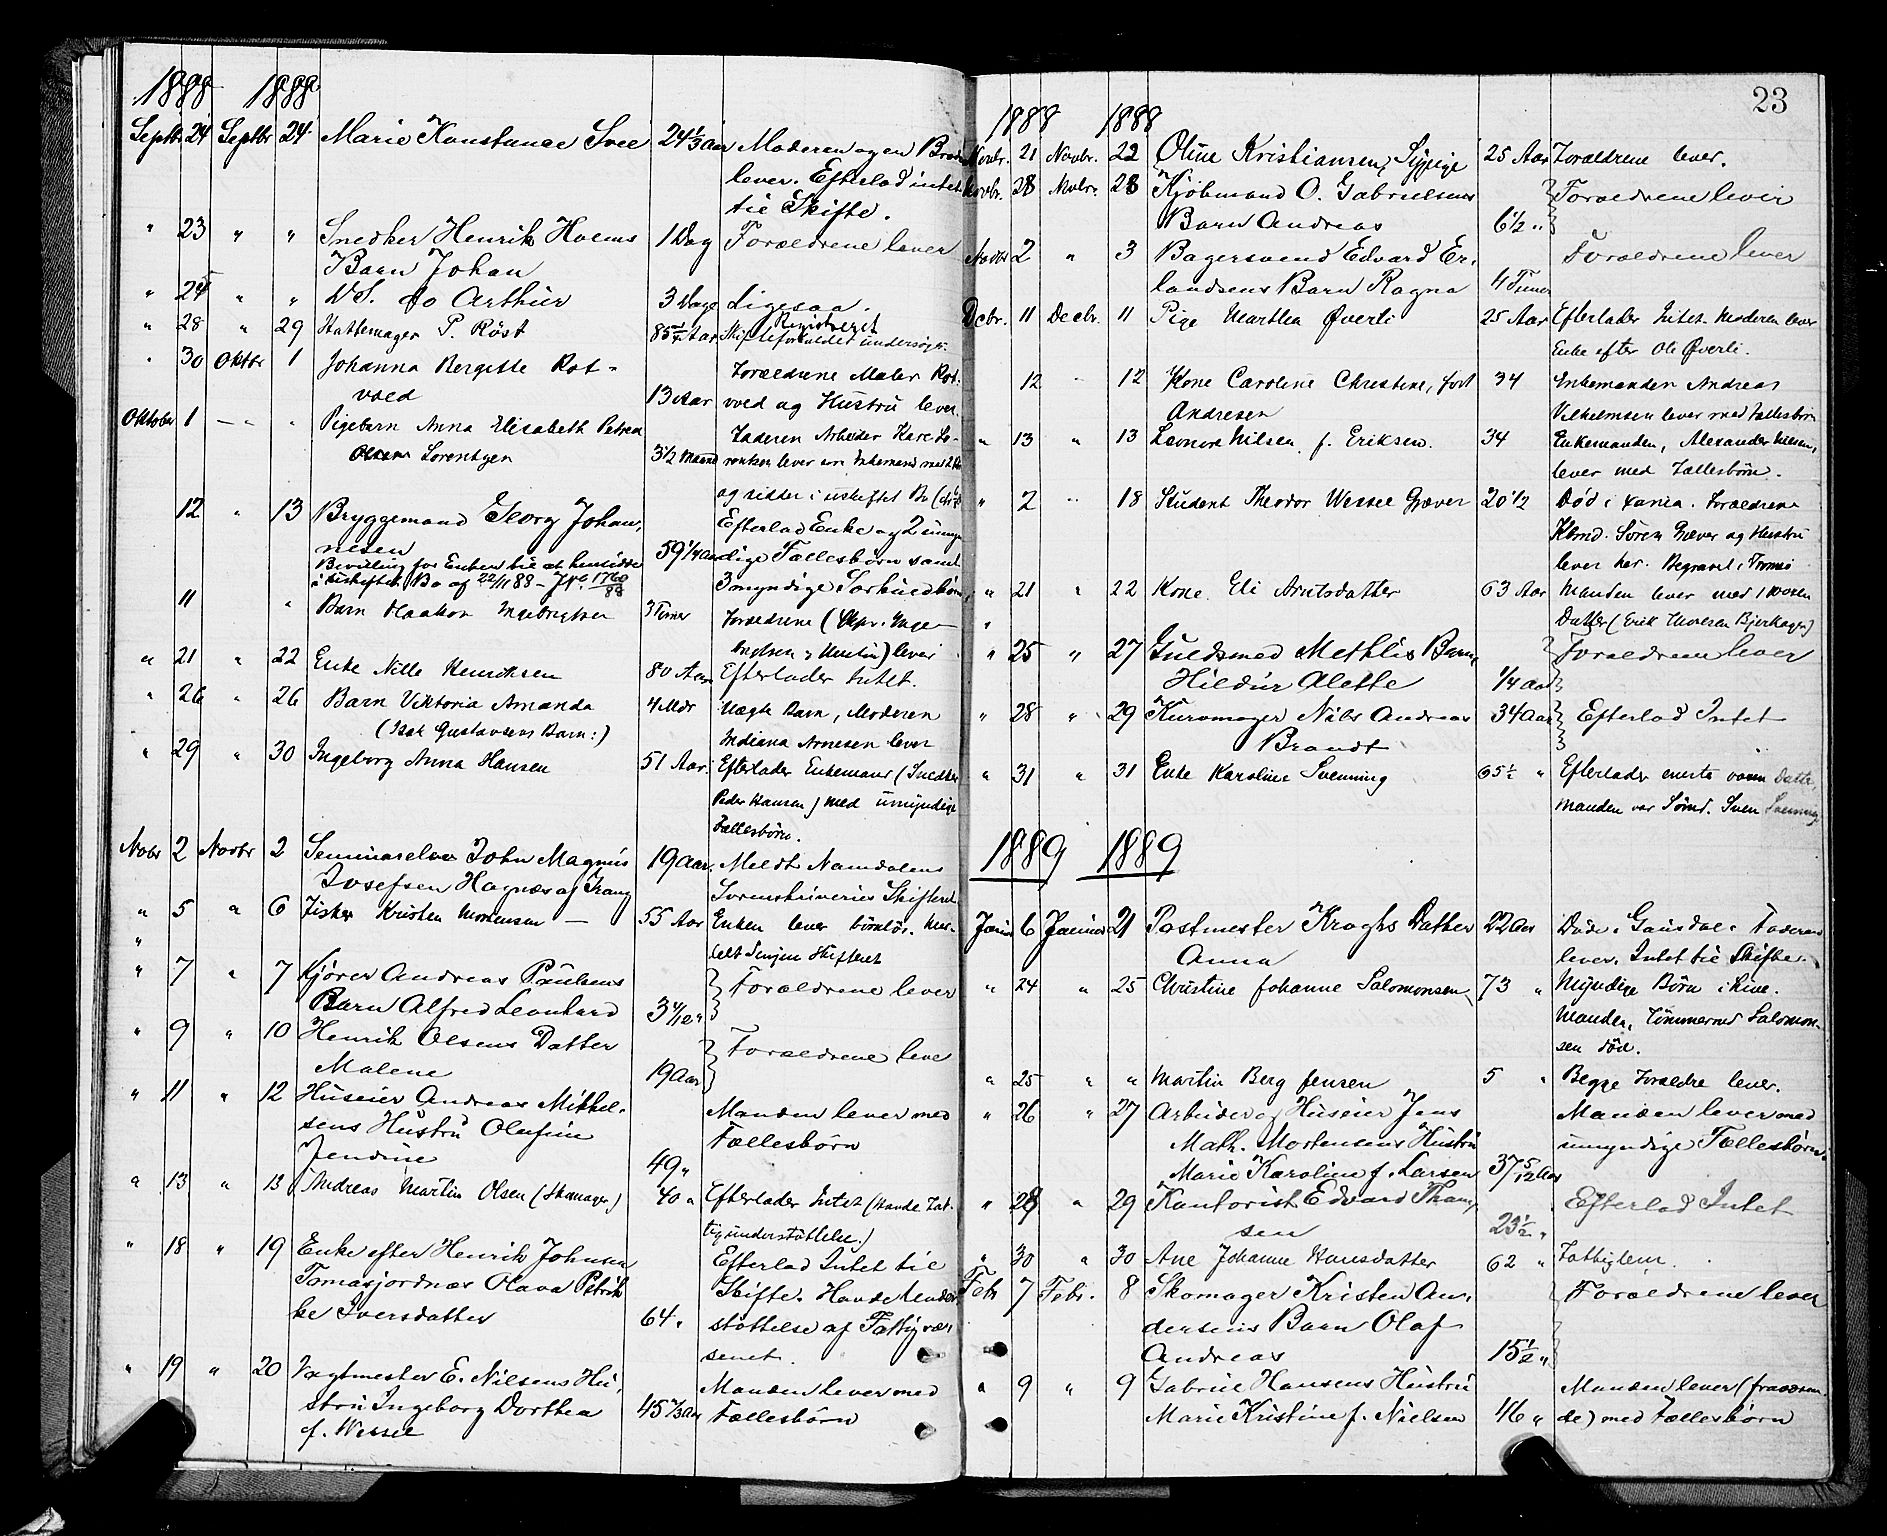 1888 1888
Septbr 24 Septbr 24 Marie Konstanse Svee 24 1/3 Aar Moderen og en Broder
lever. Efterlod intet
til Skifte.
" 23 " " Snedker Henrik Hoems 1 Dag Forældrene lever
Barn Johan
" 25 " " DS. do Arthur 3 Dage Ligesaa.
" 28 " 29 Hattemager P. Röst 85 Aar Registreret
Skifteforholdet undersöges.
" 30 Oktbr 1 Johanna Bergitte Rot- Forældrene Maler Rot-
vold 13 Aar vold og Hustru lever
Oktober 1 — " " Pigebarn Anna Elisabeth Petrea Faderen Arbeider Hare Lo-
Lorentzen 3 1/2 Maaned rentzen lever som Enkemand med
og sidder i uskiftet Bo
12 " 13 Bryggemand Georg Johan- Efterlod Enke og 2 umyn-
nesen 59 1/4 Aar dige Fællesbörn samt
Bevilling for Enken til at hensidde
i uskiftet Bo af 22/11 88 - J No 1760/88 3 myndige Særkuldbörn
11 " Barn Haakon Ingebrigtsen 3 Timer Forældrene (Skpr. Inge-
brigtsen og Hustru) lever
" 21 " 22 Enke Nille Henriksen 80 Aar Efterlader Intet.
" 26 " 26 Barn Viktoria Amanda 4 Mdr Uægte Barn, Moderen
(Isak Gustavsens Barn:) Indiana Arnesen lever
" 29 " 30 Ingeborg Anna Hansen 51 Aar Efterlader Enkemand (Snedker
Peder Hansen) med umyndige
Fællesbörn.
Nobr 2 Novbr 2 Seminarelev John Magnus 19 Aar. Meldt Namdalens
Josefsen Hagnæs af Sorenskriveries Skifteret
" 5 " 6 Fisker Kristen Mortensen — 55 Aar Enken lever börnlös. Mel-
" delt Senjen Skifteret
" 7 " 7 Kjörer Andreas Paulsens Forældrene lever
Barn Alfred Leonhard 3 4/12 "
" 9 " 10 Henrik Olsens Datter Forældrene leve
Malene 19 Aar
" 11 " 12 Huseier Andreas Mikkel- Manden lever med
sens Hustru Olufine Fællesbörn
Jendine 49 "
" 13 " 13 Andreas Martin Olsen (Skomager) 40 " Efterlader Intet (Havde Fat-
tigunderstöttelse.)
" 18 " 19 Enke efter Henrik Johnsen Efterlod Intet til
Tomasjordnæs Olava Petrik- Skifte. Havde Under-
ke Iversdatter 64 " stöttelse af Fattigvæ-
senet.
" 19 " 20 Vagtmester E. Nilsens Hu- Manden lever med
stru Ingeborg Dorthea 45 Aar Fællesbörn
f. Wessel
23
1888 1888
Novbr. 21 Novbr. 22 Oline Kristiansen, Sypige 25 Aar Forældrene lever.
Novbr. 28 Nvbr. 28 Kjöbmand O. Gabrielsens Forældrene lever
Barn Andreas 6 1/2 "
Novbr 2 " 3 Bagersvend Edvard Er- Forældrene lever
landsens Barn Ragna 4 Timer
Dcbr. 11 Decbr. 11 Pige Martha Øverli 25 Aar Efterlader Intet. Moderen lever
Enke efter Ole Øverli.
12 " 12 Kone Caroline Christine, født 34 Enkemanden Andreas
Andresen Vilhelmsen lever med Fællesbörn
" 13 " 13 Leonora Nilsen f. Eriksen. 34 Enkemanden, Alexander Nilsen,
lever med Fællesbörn.
" 2 " 18 Student Theodor Wessel Græver 20 1/2 Död i Xania. Forældrene
Kbmd. Sören Græver og Hustru
lever her. Begravet i Tromsö
" 21 " 22 Kone Eli Arntsdatter 63 Aar Manden lever med 1 voxen
" Datter (Erik Thoresen Bjerkager)
" 25 " 27 Guldsmed Methlis Barn, Forældrene lever
Hildur Alette 1/4 Aar
" 28 " 29 Kuromager Nils Andreas 34 Aar Efterlod Intet
Brandt
" 31 " 31 Enke Karoline Svenning 65 1/2 " Efterlader eneste Datter,
Manden var Sömd. Sven Svenning
1889 1889
Januar 6 Januar 21 Postmester Kroghs Datter 22 Aar Döde i Gausdal. Faderen
Anna lever. Intet til Skifte.
" 24 " 25 Christine Johanne Salomonsen 73 " Myndige Börn i Live.
Manden, Tömmermd Salomon-
sen död.
" 25 " " Martin Berg Jensen 5 " Begge Forældre lever.
" 26 " 27 Arbeider og Huseier Jens Manden lever med
Math. Mortensens Hustru umyndige Fællesbörn.
Marie Karoline f. Larsen 37 5/12 Aar
" 28 " 29 Kontorist Edvard Thom- Efterlod Intet
sen 23 1/2 "
" 30 " 30 Ane Johanne Hansdatter 62 " Fattiglem.
Febr 7 Febr. 8 Skomager Kristen An- Forældrene lever
dersens Barn Olaf
Andreas 15 1/2 "
" 9 " 9 Gabriel Hansens Hustru Manden lever (fraværen-
Marie Kristine f. Nielsen 46 " de) med Fællesbörn